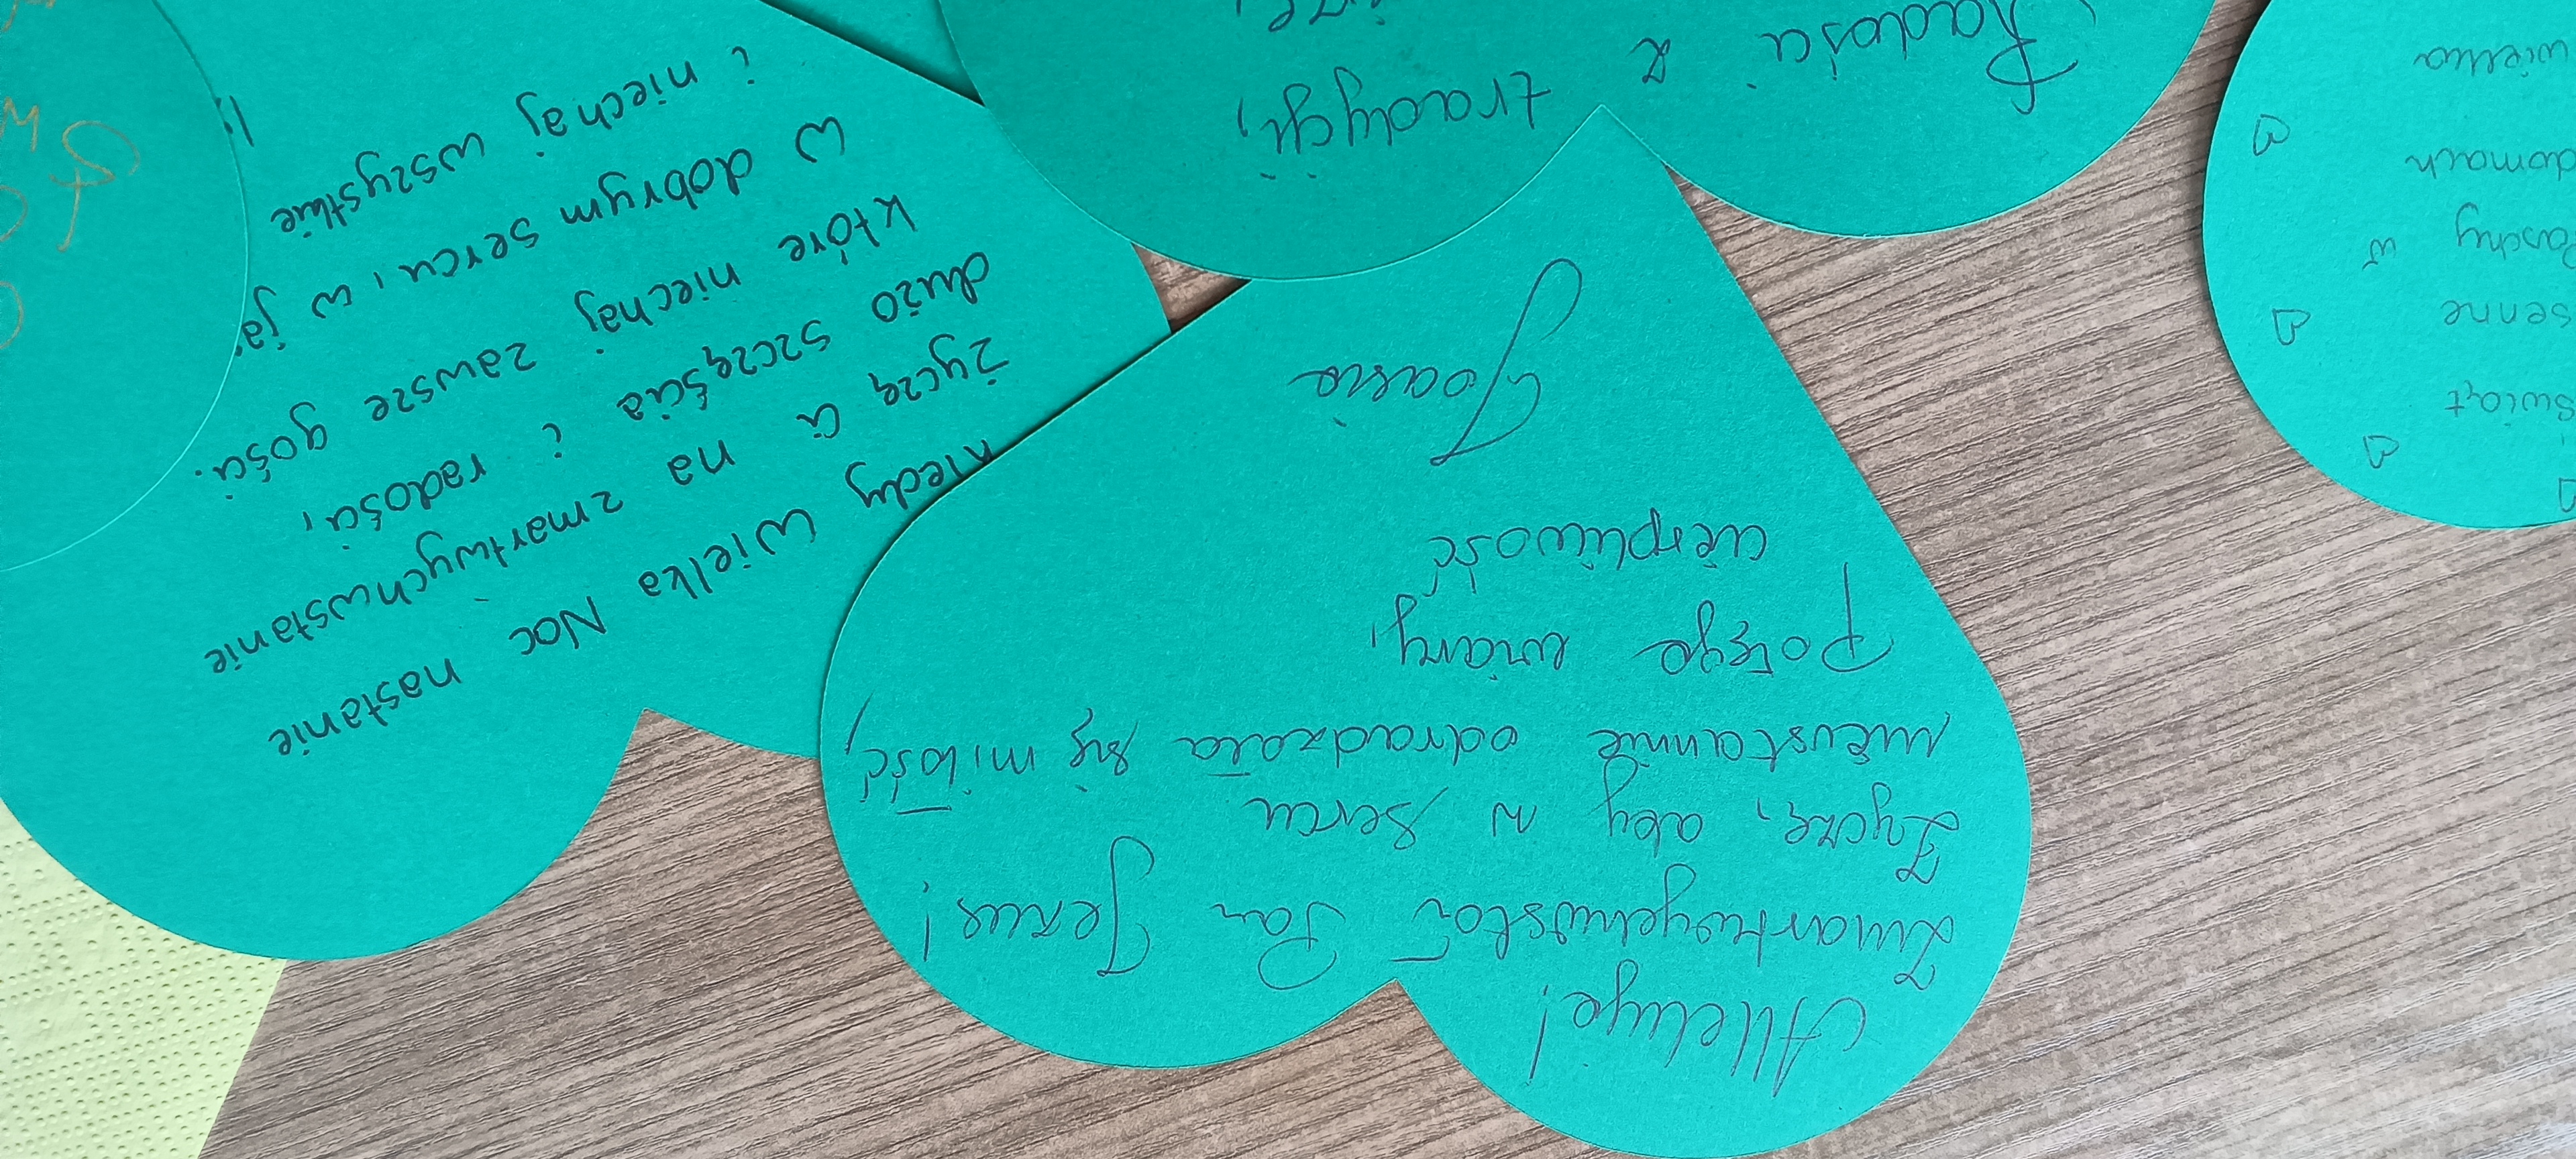 Alleluja!
Zmartwychwstał Pan Jezus!
Życzę, aby w sercu
nieustannie odradzała się miłość,
Potęga wiary,
cierpliwość
Joasia
kiedy Wielka Noc nastanie
życzę Ci na zmartwychwstanie
dużo szczęścia i radości,
które niechaj zawsze gości.
w dobrym sercu, w ja
i niechaj wszystkie
Radości z
tradycji,
Świąt
Paschy w
domach
wielka